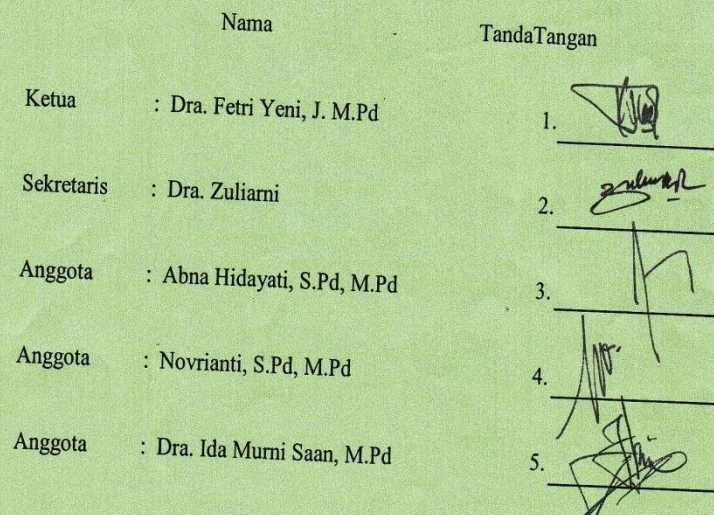 Nama TandaTangan
Ketua : Dra. Fetri Yeni, J. M.Pd 1.
Sekretaris : Dra. Zuliarni 2.
Anggota : Abna Hidayati, S.Pd, M.Pd 3.
Anggota : Novrianti, S.Pd, M.Pd 4.
Anggota : Dra. Ida Murni Saan, M.Pd 5.